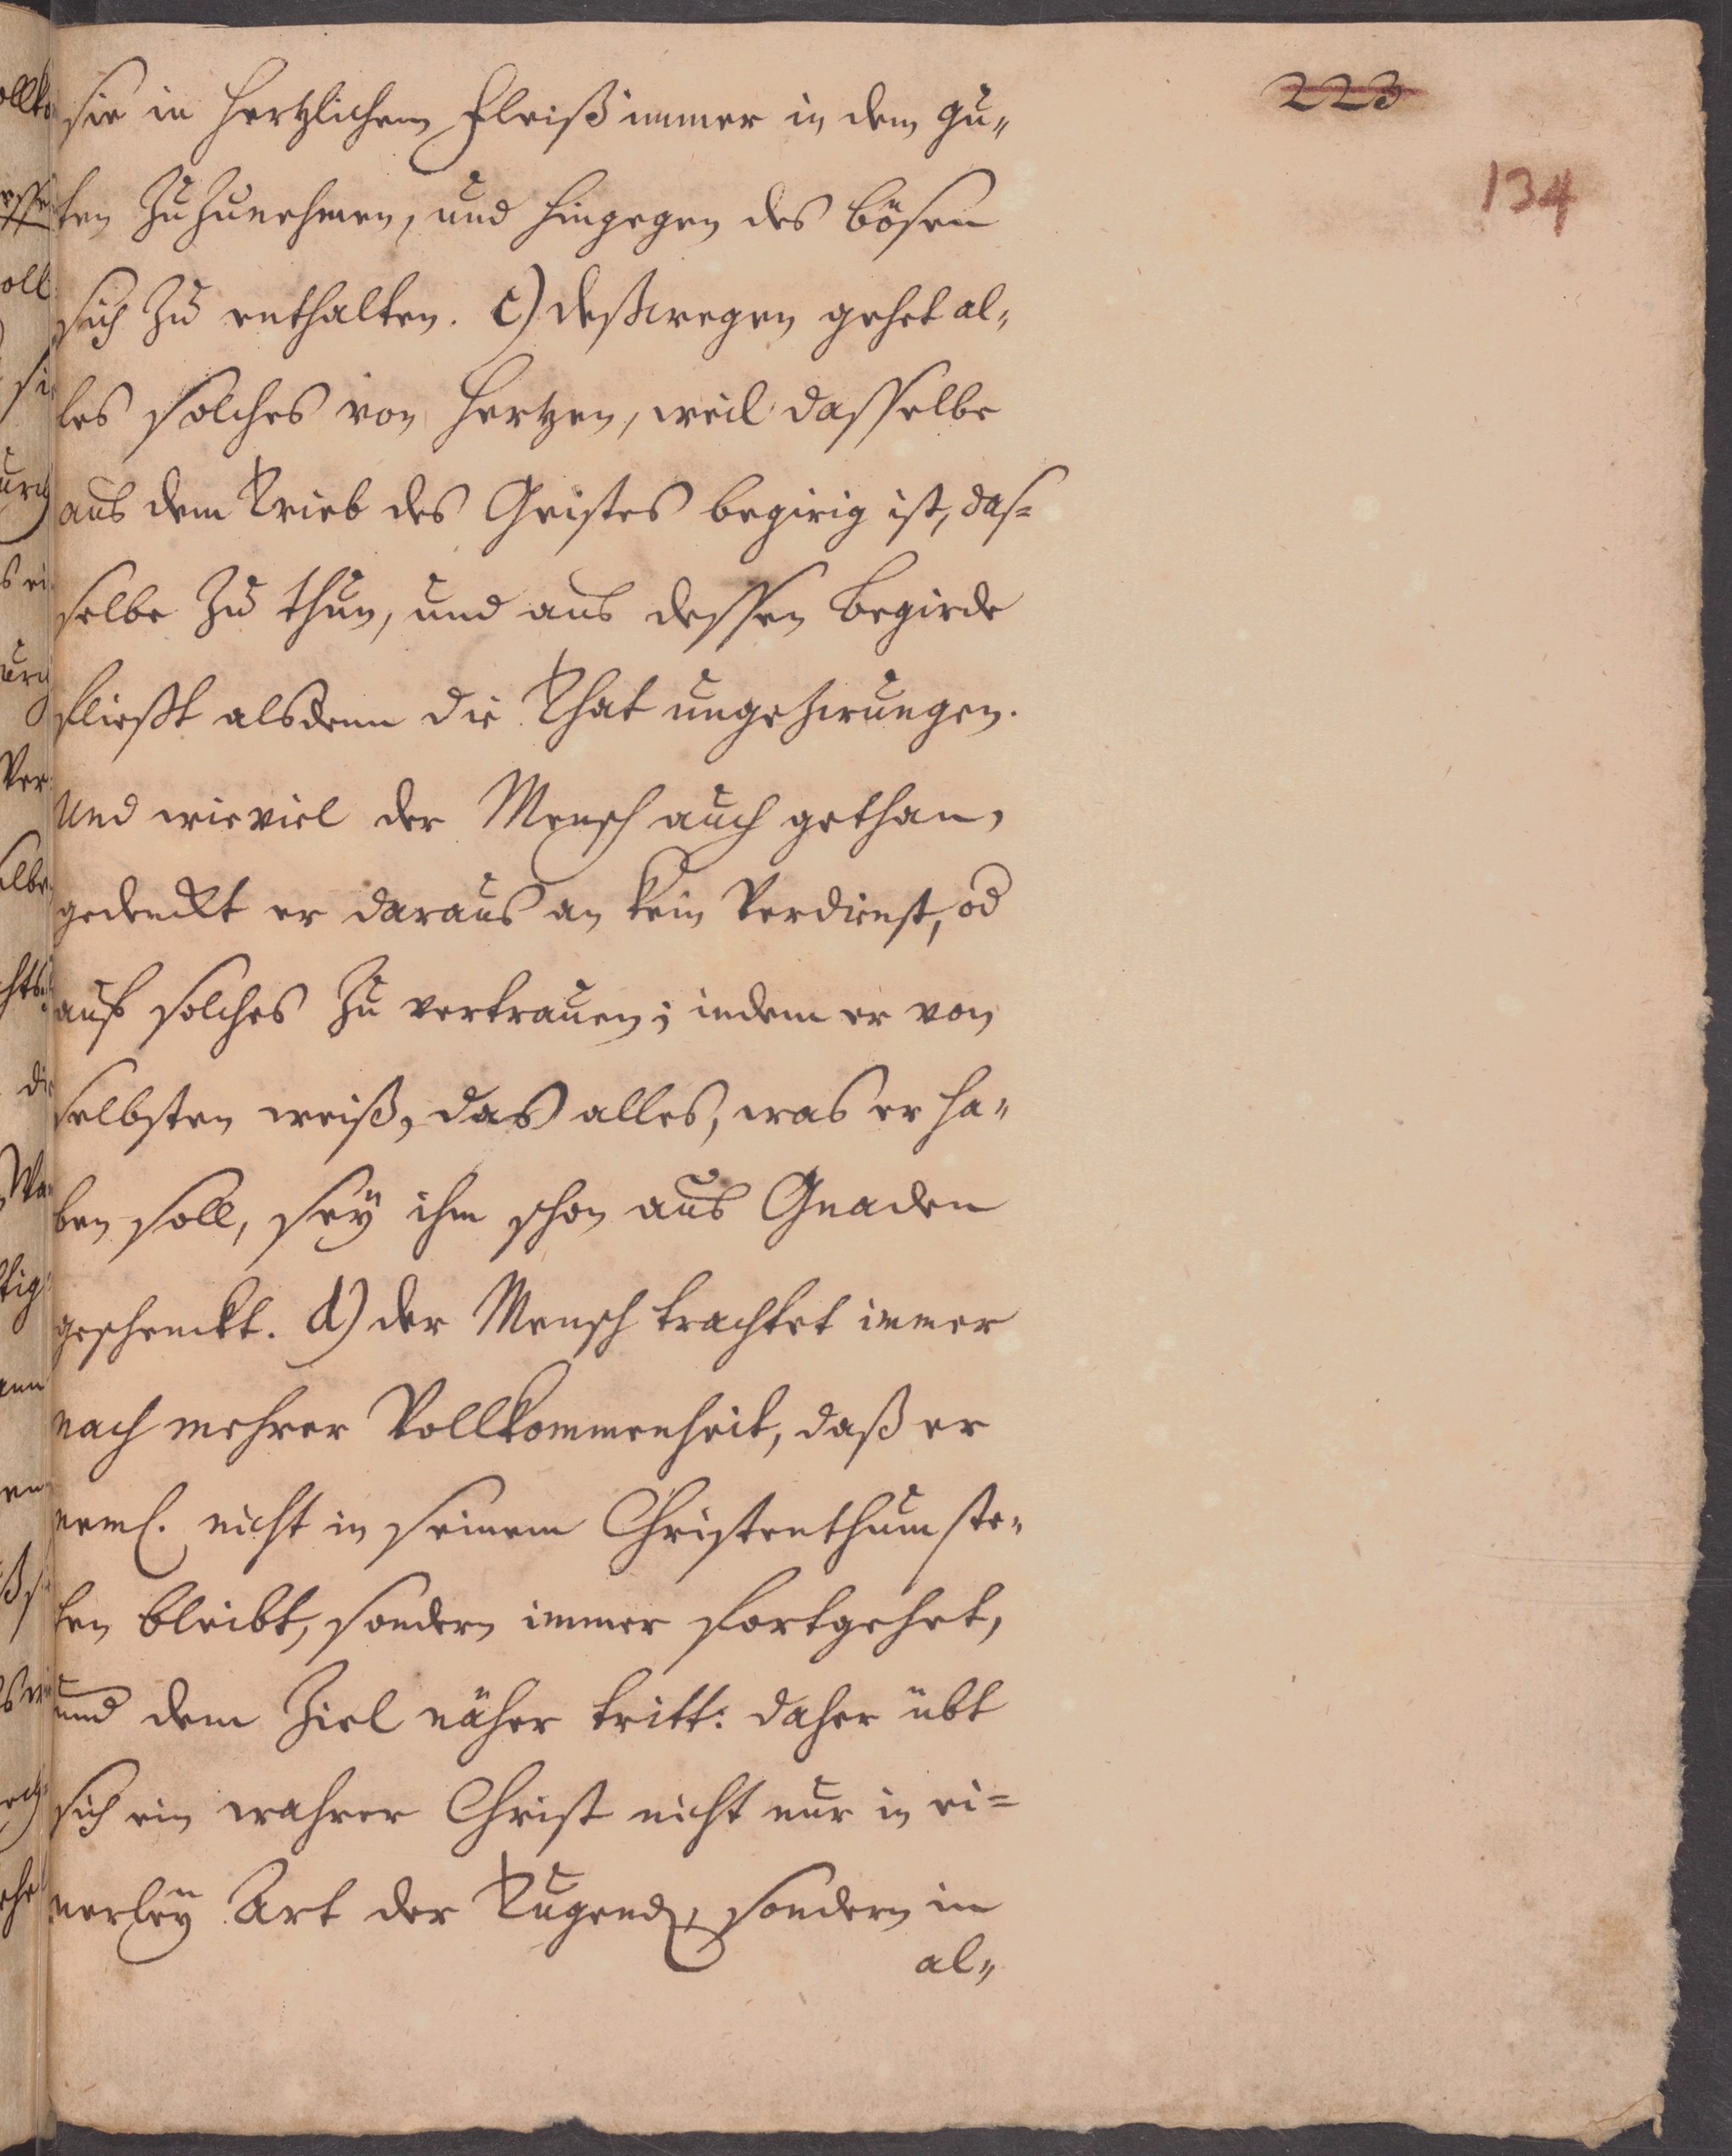 223
134
sie in hertzlichem Fleiß immer in dem gu„
ten zuzunehmen, und hingegen des bösen
sich zu enthalten. c) deßwegen gehet al„
les solches von Hertzen, weil dasselbe
aus dem Trieb des Geistes begirig ist, das=
selbe zu thun, und aus dessen Begirde
fliesst alsdenn die That ungezwungen.
Und wieviel der Mensch auch gethan,
gedenckt er daraus an kein Verdienst, od
auf solches zu vertrauen; indem er von
selbsten weiß, das alles, was er ha„
ben soll, seÿ ihm schon aus Gnaden
geschenckt. d) der Mensch trachtet immer
nach mehrer Vollkommenheit, daß er
neml. nicht in seinem Christenthum ste„
hen bleibt, sondern immer fortgehet,
und dem Ziel näher tritt: daher übt
sich ein wahrer Christ nicht nur in ei=
nerleÿ Art der Tugend, sondern in
al„